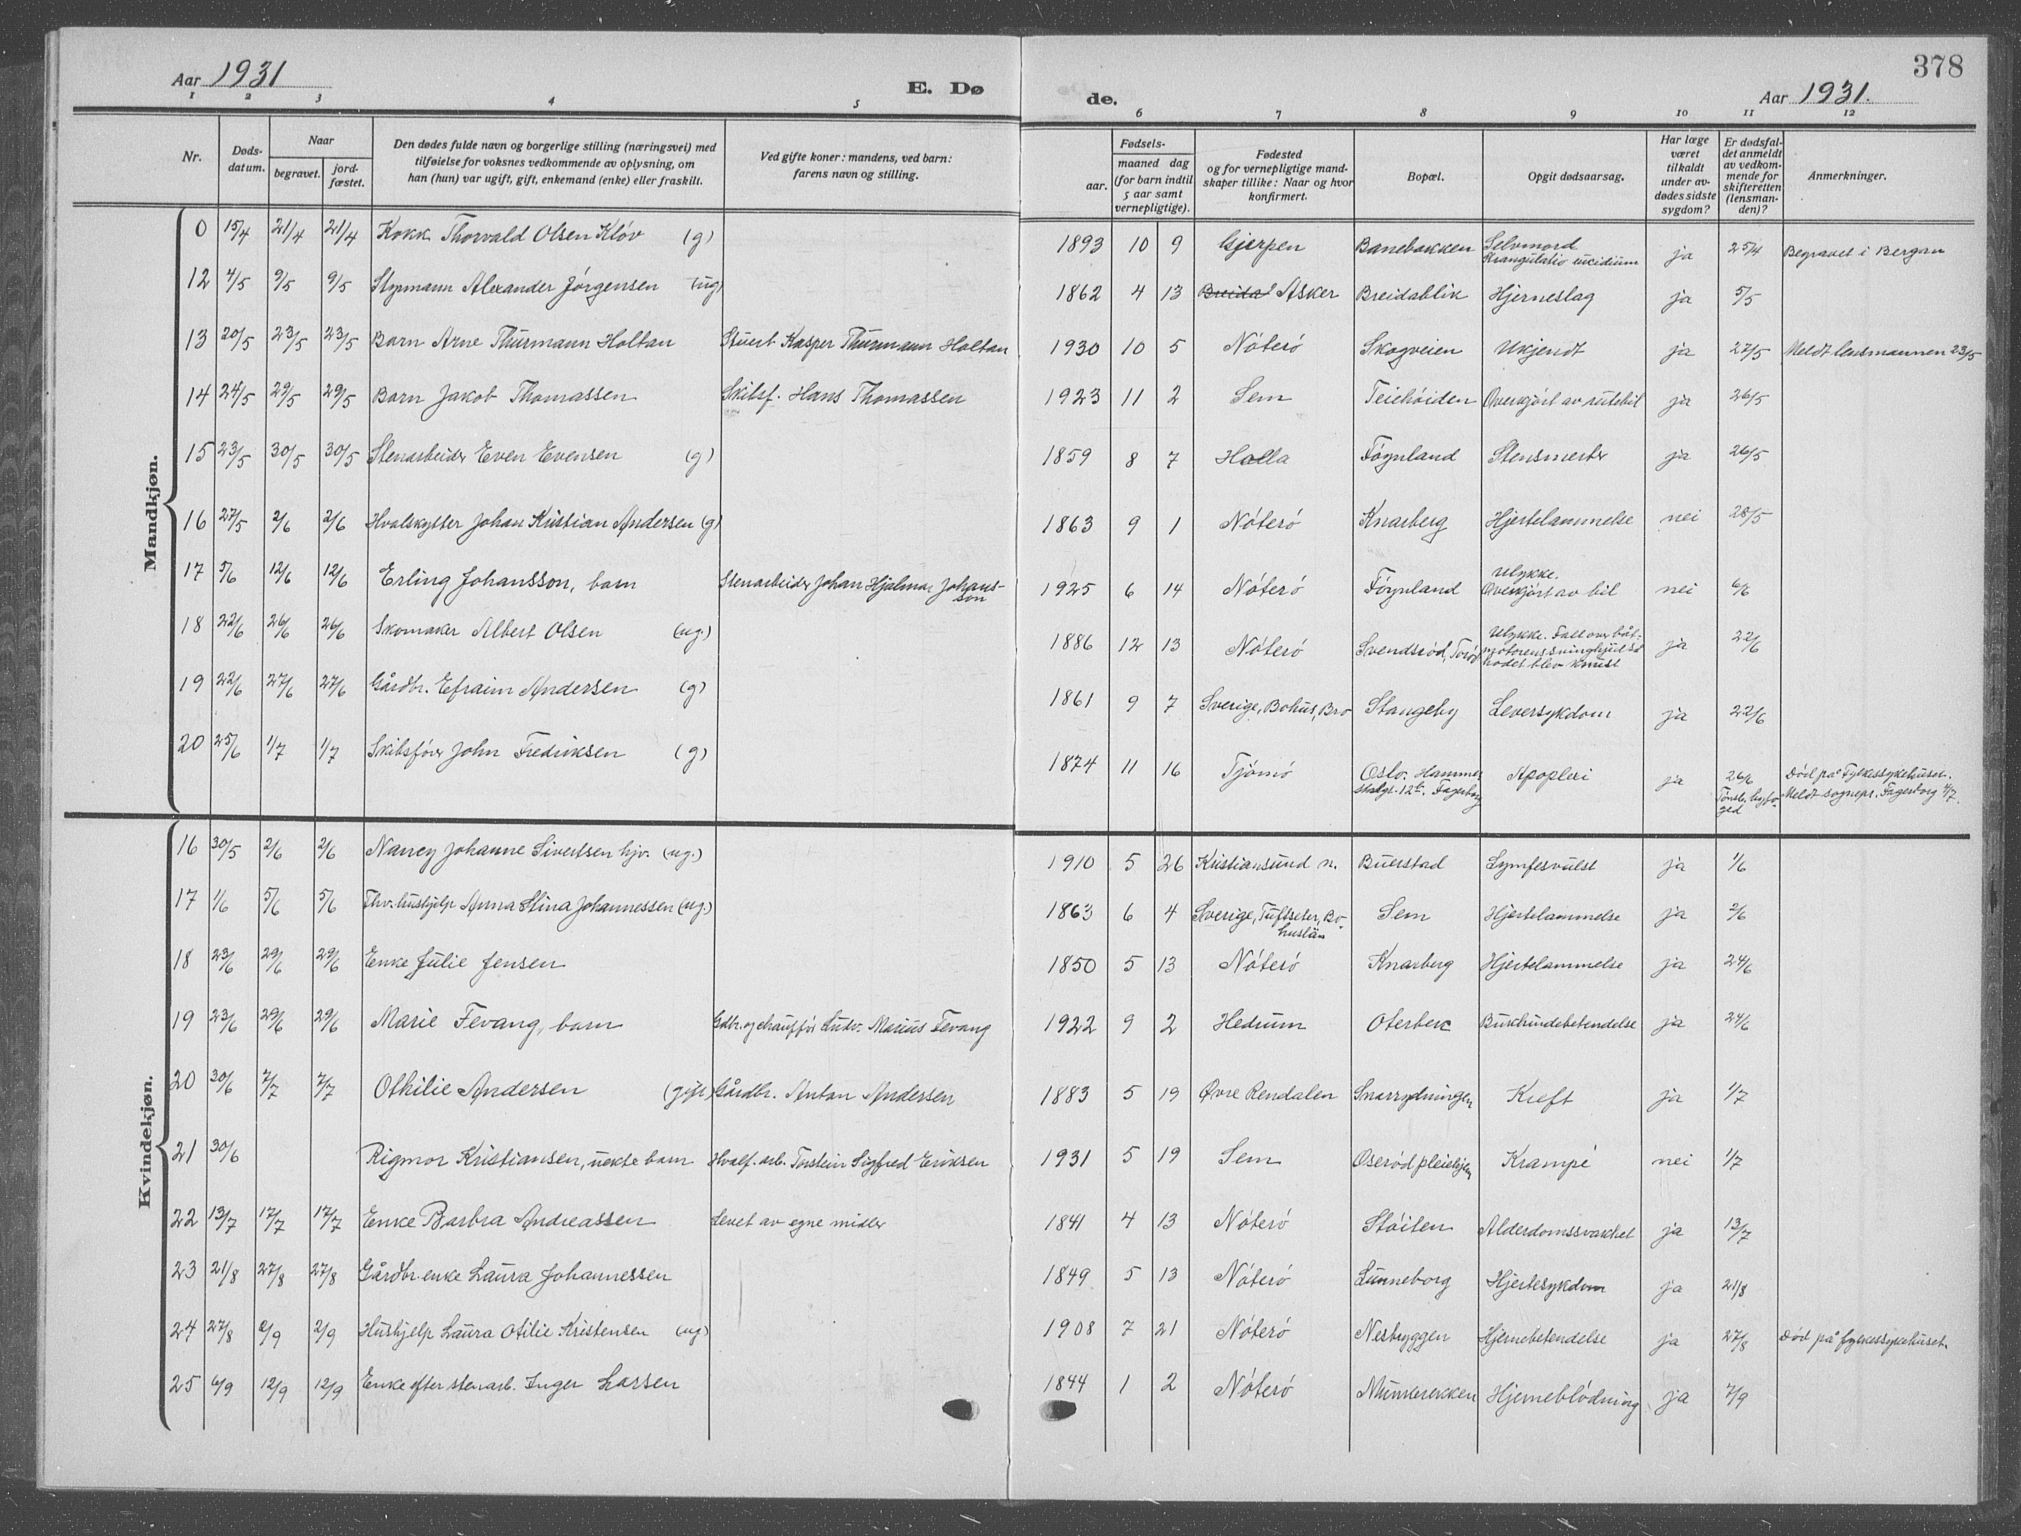 378
Aar 1931
E. Dø
de.
Aar 1931.
1 2 3 4 5 6 7 8 9 10 11 12
Nr.
Døds-
datum.
Naar
begravet.
jord-
fæstet.
Den dødes fulde navn og borgerlige stilling (næringsvei) med
tilføielse for voksnes vedkommende av oplysning, om
han (hun) var ugift, gift, enkemand (enke) eller fraskilt.
Ved gifte koner: mandens, ved barn:
farens navn og stilling.
Fødsels-
aar.
maaned dag
(for barn indtil
5 aar samt
vernepligtige).
Fødested
og for vernepligtige mand-
skaper tillike: Naar og hvor
konfirmert.
Bopæl.
Opgit dødsaarsag.
Har læge
været
tilkaldt
under av-
dødes sidste
sygdom?
Er dødsfal-
det anmeldt
av vedkom-
mende for
skifteretten
(lensman-
den)?
Anmerkninger.
Mandkjøn.
0 15/4 21/4 21/4 Kokk Thorvald Olsen Kløv (g) 1893 10 9 Gjerpen Banebakken Selvmord ja 25/4 Begravet i Bergan
12 4/5 9/5 9/5 Styrmann Alexander Jørgensen (ug) 1862 4 13 Asker Breidablik Hjerneslag ja 5/5
13 20/5 23/5 23/5 Barn Arne Thurmann Holtan Stuert Kasper Thurmann Holtan 1930 10 5 Nøterø Skogveien Ukjendt ja 27/5 Meldt lensmannen 23/5
14 24/5 29/5 29/5 Barn Jakob Thomassen Skibsf. Hans Thomassen 1923 11 2 Sem Teiehøiden Overkjørt av rutebil ja 26/5
15 23/5 30/5 30/5 Stenarbeider Even Evensen (g) 1859 8 7 Holla Føynland Stensmerter ja 26/5
16 27/5 2/6 2/6 Hvalskytter Johan Kristian Andersen (g) 1863 9 1 Nøterø Knarberg Hjertelammelse nei 28/5
17 5/6 12/6 12/6 Erling Johansson, barn Stenarbeider Johan Hjalmar Johans-
son 1925 6 14 Nøterø Føynland Ulykke.
Overkjørt av bil nei 6/6
18 22/6 26/6 26/6 Skomaker Albert Olsen (ug.) 1886 12 13 Nøterø Svendsrød, Torød Ulykke. Falt over båt-
motorens svinghjul så
hodet blev knust ja 22/6
19 22/6 27/6 27/6 Gårdbr. Efraim Andersen (g) 1861 9 7 Sverige, Bohus, Bro Stangeby Leversykdom ja 22/6
20 25/6 1/7 1/7 Skibsfører John Fredriksen (g) 1874 11 16 Tjømø Oslo. Apopleri ja 26/6 Død på Fylkessykehuset.
Meldt sognepr. Fagerborg
Kvindekjøn.
16 30/5 2/6 2/6 Nancy Johanne Sivertsen hjv. (ug.) 1910 5 26 Kristiansund n. Buerstad Lymfesvulst ja 1/6
17 1/6 5/6 5/6 Fhv. hushjelp Anna Stina Johannessen (ug.) 1863 6 4 Sverige, Tuftseter, Bo-
huslän Sem Hjertelammelse ja 2/6
18 23/6 29/6 29/6 Enke Julie Jensen 1850 5 13 Nøterø Knarberg Hjertelammelse ja 24/6
19 23/6 29/6 29/6 Marie Fevang, barn Gdbr. og chauffør Ludv. Marius Fevang 1922 9 2 Hedrum Oterbek Bukhindebetendelse ja 24/6
20 30/6 7/7 7/7 Othilie Andersen (gift) Gårdbr. Anton Andersen 1883 5 19 Øvre Rendalen Snarrydningen Kreft ja 1/7
21 30/6 Rigmor Kristiansen, uekte barn Hvalf. arb. Torstein Sigfred Eriksen 1931 5 19 Sem Oserød pleiehjem Krampe nei 1/7
22 13/7 17/7 17/7 Enke Barbra Andreassen Levet av egne midler 1841 4 13 Nøterø Støiten Alderdomssvakhet ja 13/7
23 21/8 27/8 27/8 Gårdbr. enke Laura Johannessen 1849 5 13 Nøterø Lunneborg Hjertesykdom ja 21/8
24 27/8 2/9 2/9 Hushjelp Laura Otilie Kristensen (ug) 1908 7 21 Nøterø Nesbryggen Hjernebetendelse ja 27/8 Død på fylkessykehuset.
25 6/9 12/9 12/9 Enke efter stenarb. Inger Larsen 1844 1 2 Nøterø Munkerekken Hjerneblødning ja 7/9